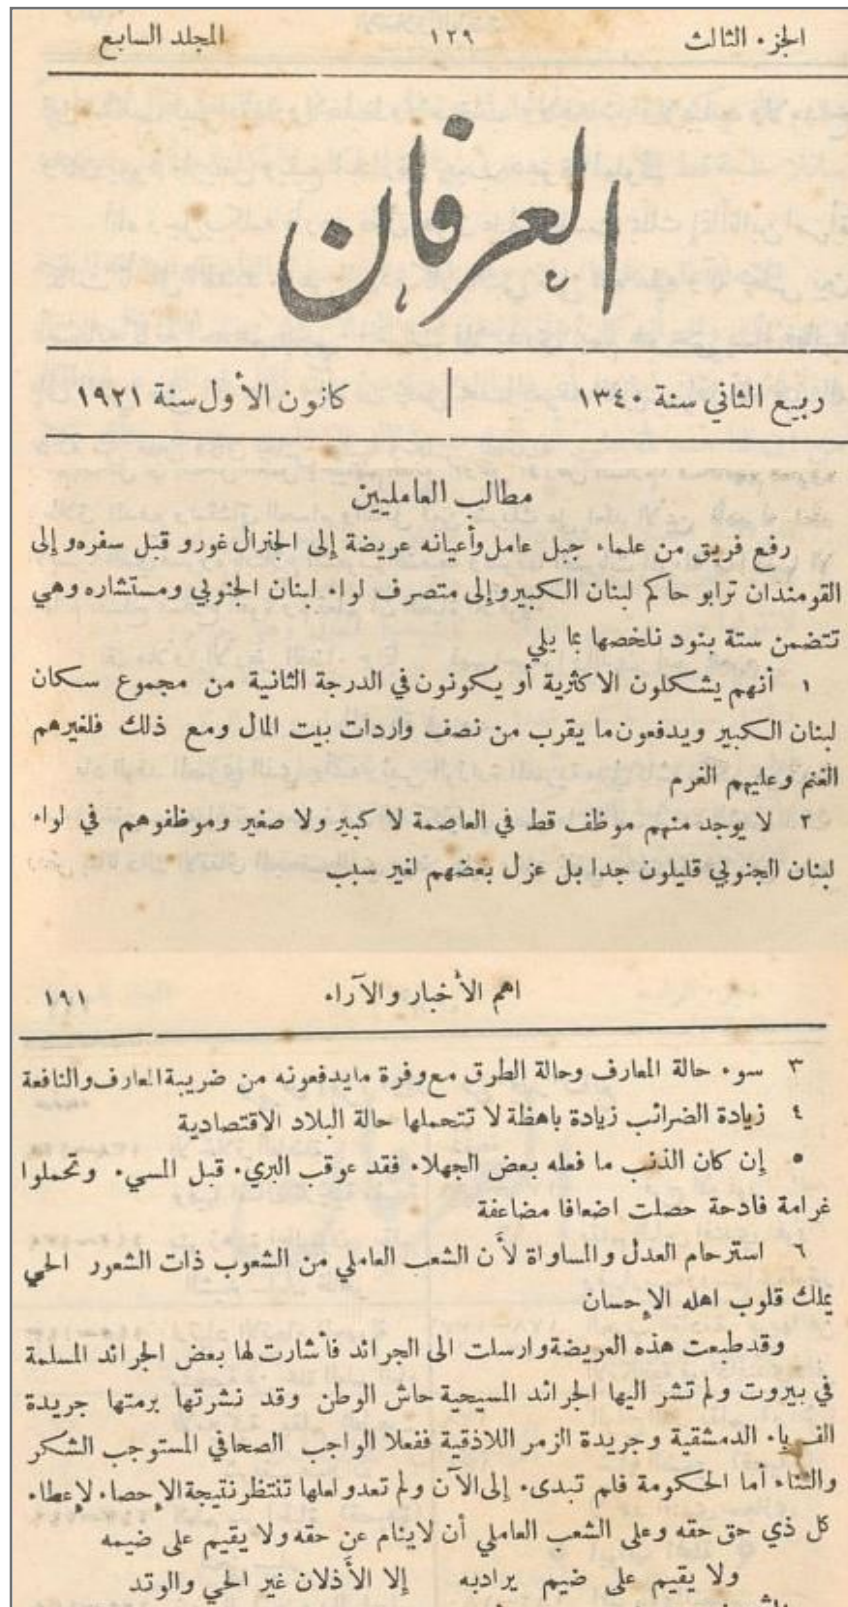 الجزء الثالث ١٢٩ المجلد السابع
العرفان
ربيع الثاني سنة ١٣٤٠ كانون الأول سنة ١٩٢١
مطالب العامليين
رفع فريق من علماء جبل عامل وأعيانه عريضة إلى الجنرال غورو قبل سفره وإلى
القومندان ترابو حاكم لبنان الكبير وإلى متصرف لواء لبنان الجنوبي ومستشاره وهي
تتضمن ستة بنود نلخصها بما يلي
١ أنهم يشكلون الاكثرية أو يكونون في الدرجة الثانية من مجموع سكان
لبنان الكبير ويدفعون ما يقرب من نصف واردات بيت المال ومع ذلك فلغيرهم
الغنم وعليهم الغرم
٢ لا يوجد منهم موظف قط في العاصمة لا كبير ولا صغير وموظفوهم في لواء
لبنان الجنوبي قليلون جدا بل عزل بعضهم لغير سبب
اهم الأخبار والآراء ١٩١
٣ سوء حالة المعارف وحالة الطرق مع وفرة ما يدفعونه من ضريبة المعارف والنافعة
٤ زيادة الضرائب زيادة باهظة لا تتحملها حالة البلاد الاقتصادية
٥ إن كان الذنب ما فعله بعض الجهلاء فقد عوقب البريء قبل المسيء وتحملوا
غرامة فادحة حصلت اضعافا مضاعفة
٦ استرحام العدل والمساواة لأن الشعب العاملي من الشعوب ذات الشعور الحي
يملك قلوب اهله الإحسان
وقد طبعت هذه العريضة وارسلت الى الجرائد فأشارت لها بعض الجرائد المسلمة
في بيروت ولم تشر اليها الجرائد المسيحية حاش الوطن وقد نشرتها برمتها جريدة
الدمشقية وجريدة الزمر اللاذقية ففعلا الواجب الصحافي المستوجب الشكر
والثناء أما الحكومة فلم تبدىء إلى الآن ولم تعد ولعلها تنتظر نتيجة الإحصاء لإعطاء
كل ذي حق حقه وعلى الشعب العاملي أن لا ينام عن حقه ولا يقيم على ضيمه
ولا يقيم على ضيم يراد به إلا الأذلان غير الحي والوتد